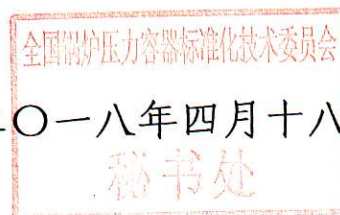 全国锅炉压力容器标准化技术委员会
〇一八年四月十八
秘书处